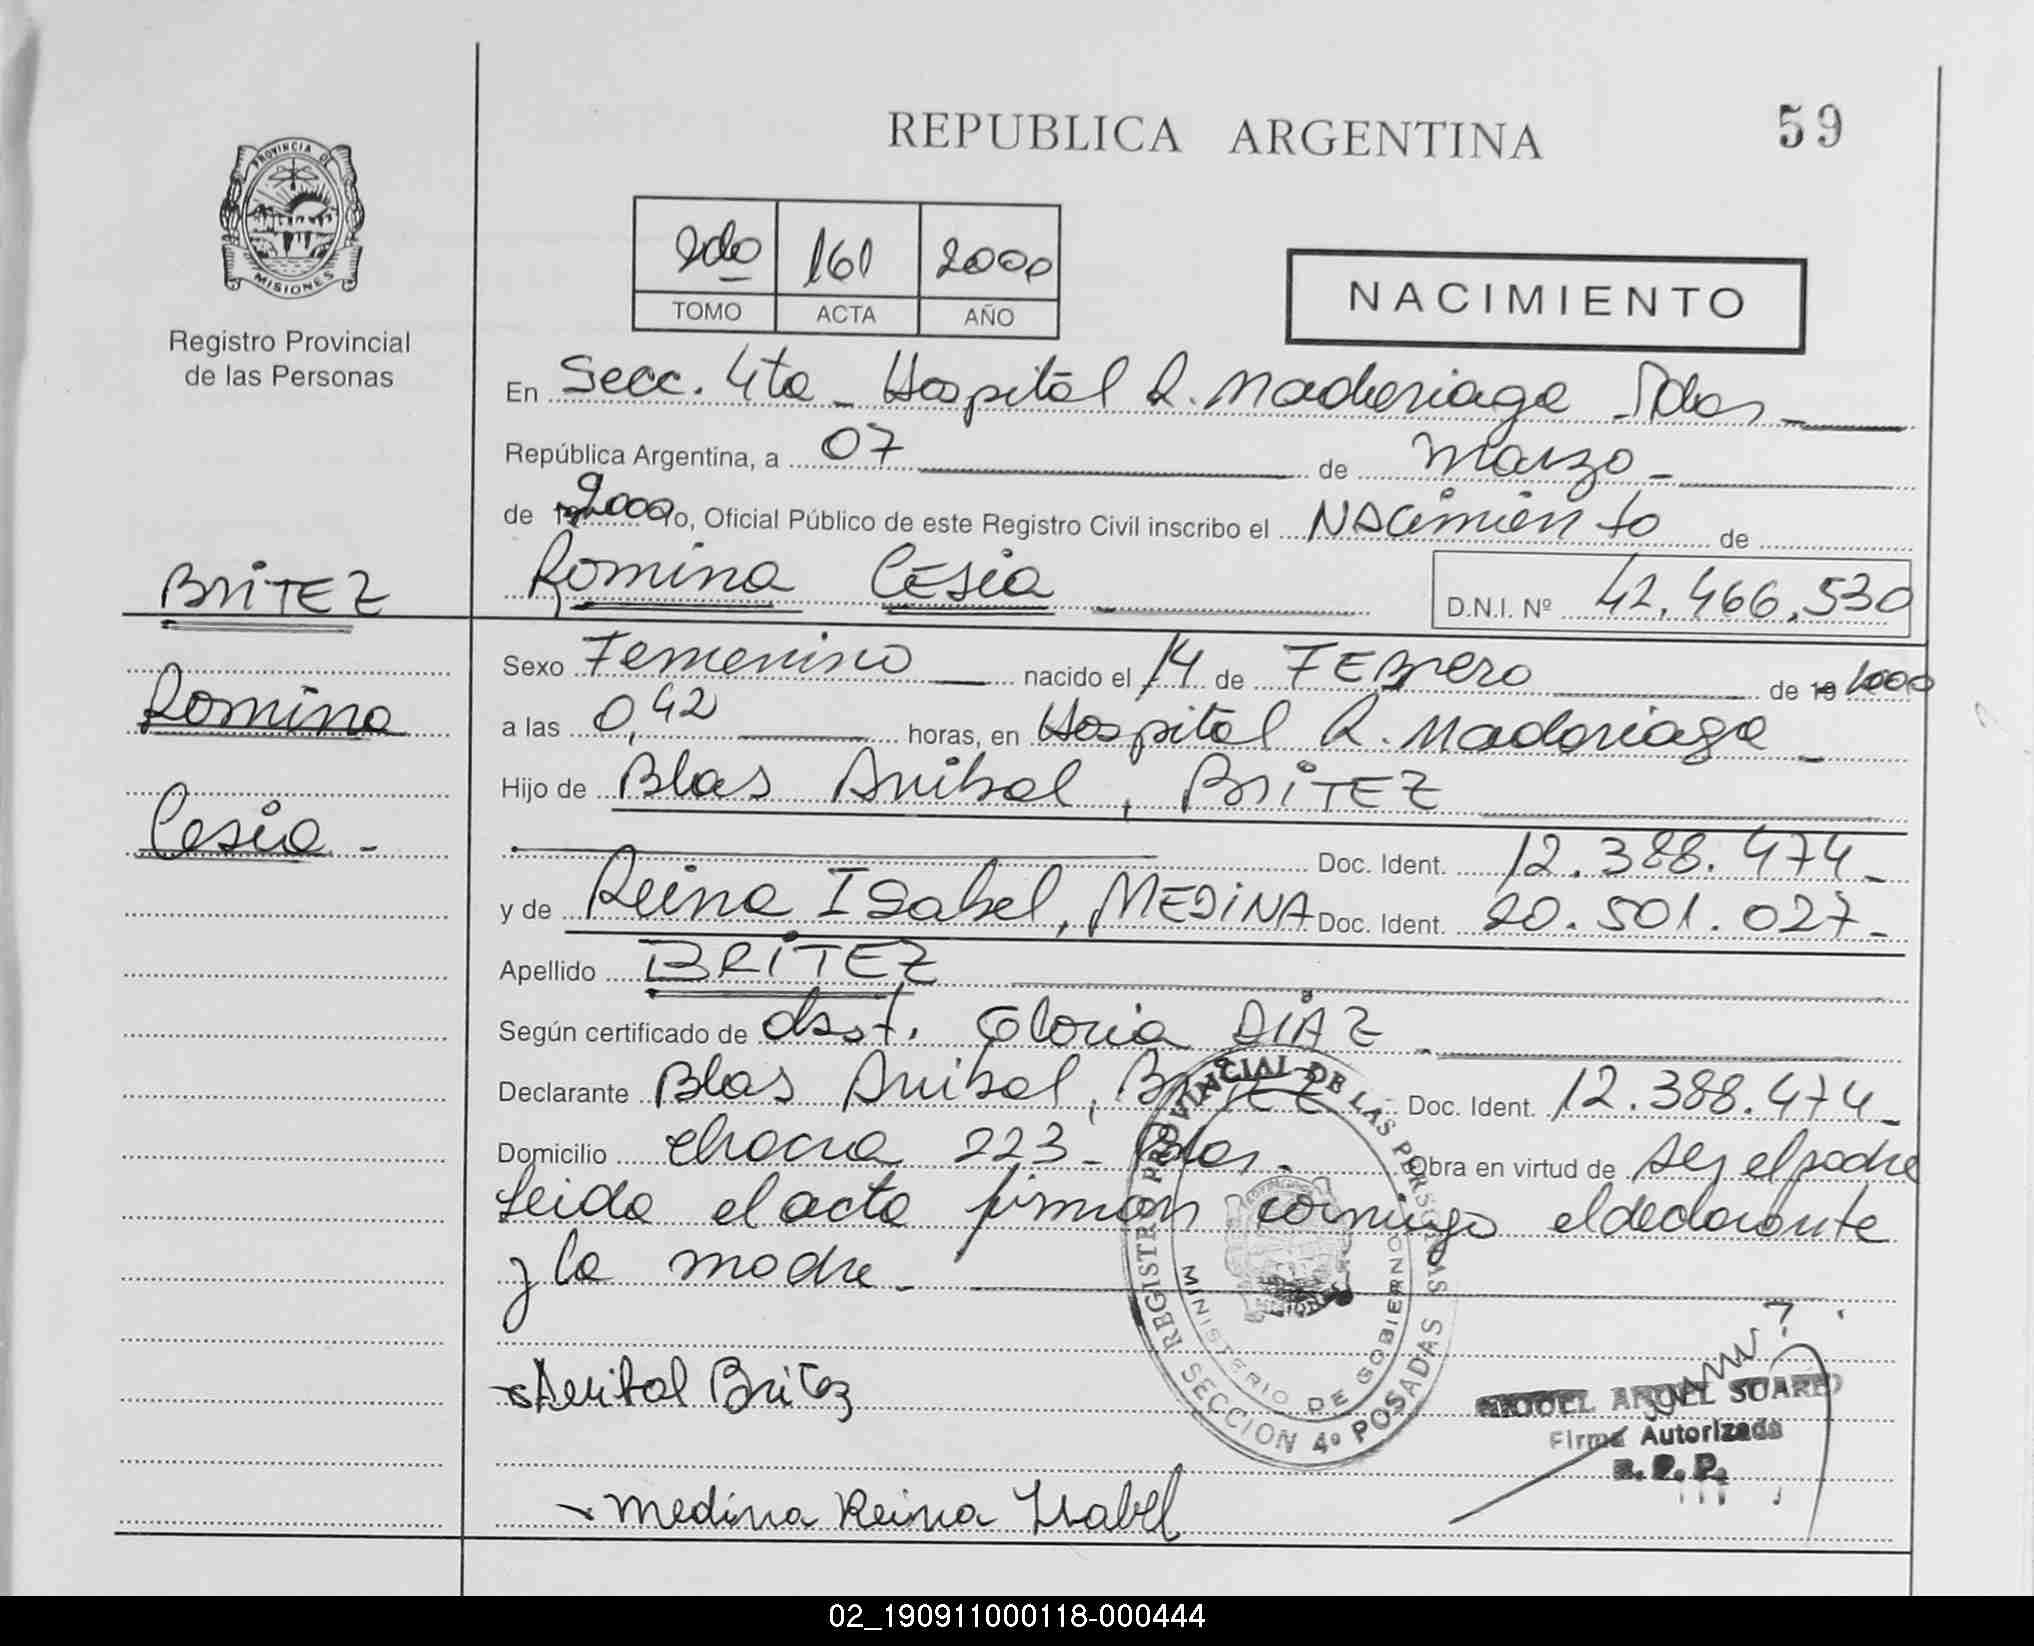 REPUBLICA ARGENTINA
59
PROVINCIA DE
MISIONES
Registro Provincial
de las Personas
2do 161 2000
TOMO ACTA AÑO
NACIMIENTO
En Secc. 4ta - Hospital R. Madariaga Pdas -
República Argentina, a 07 de Marzo -
de 2000 Yo, Oficial Público de este Registro Civil inscribo el NACimiento de
Romina Cesia
D.N.I. Nº 42.466.530
BRITEZ
Romina
Cesia -
Sexo Femenino nacido el 14 de FEBrero de 19 2000
a las 0,42 horas, en Hospital R. Madariaga -
Hijo de Blas Anibal, BRITEZ
Doc. Ident. 12.388.474-
y de Reina Isabel, MEDINA Doc. Ident. 20.501.027-
Apellido BRITEZ
Según certificado de obst. Gloria DIAZ -
Declarante Blas Anibal, BRITEZ Doc. Ident. 12.388.474-
Domicilio chacra 223- Pdas. Obra en virtud de ser el padre
Leida el acta firman conmigo el declarante
y la madre -
REGISTRO PROVINCIAL DE LAS PERSONAS
MINISTERIO DE GOBIERNO
SECCION 4º POSADAS
Anibal Britez
MIGUEL ANGEL SUAREZ
Firma Autorizada
R. P. P.
Medina Reina Isabel
02_190911000118-000444